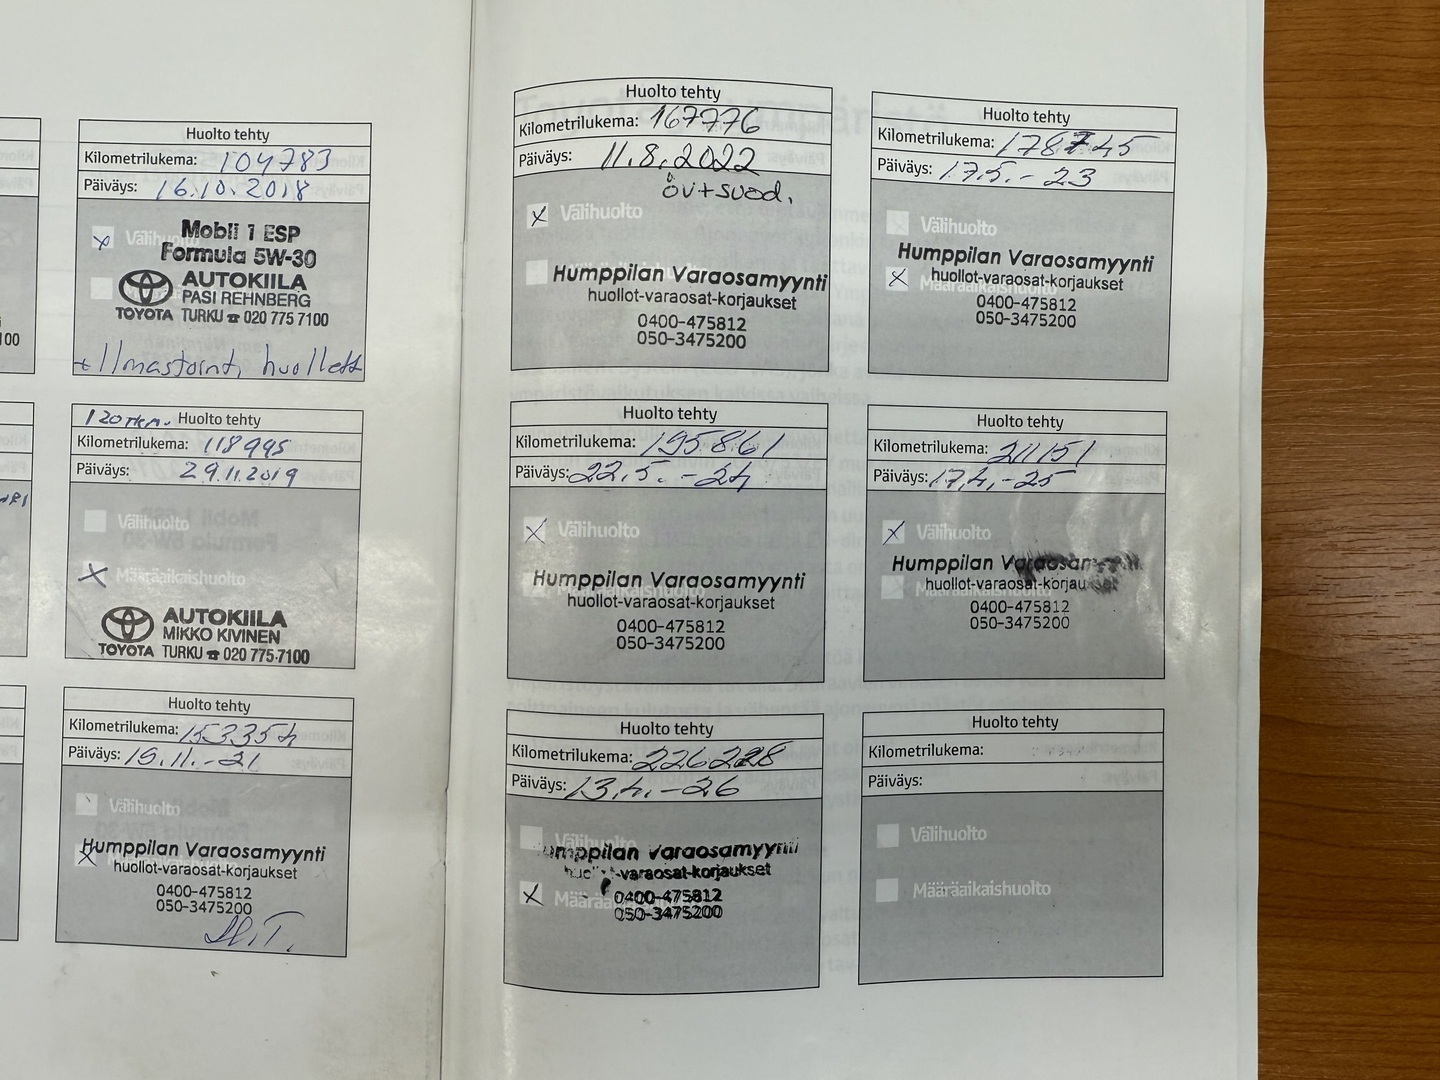 Huolto tehty
Kilometrilukema: 104783
Päiväys: 16.10.2018
Välihuolto
Mobil 1 ESP
Formula 5W-30
AUTOKIILA
PASI REHNBERG
TOYOTA TURKU ☎ 020 775 7100
+ Ilmastoint. huollett
120 tkm. Huolto tehty
Kilometrilukema: 118995
Päiväys: 29.11.2019
Välihuolto
Määräaikaishuolto
AUTOKIILA
MIKKO KIVINEN
TOYOTA TURKU ☎ 020 775 7100
Huolto tehty
Kilometrilukema: 153354
Päiväys: 19.11.-21
Välihuolto
Humppilan Varaosamyynti
huollot-varaosat-korjaukset
0400-475812
050-3475200
Huolto tehty
Kilometrilukema: 167776
Päiväys: 11.8.2022
öv+suod.
Välihuolto
Humppilan Varaosamyynti
huollot-varaosat-korjaukset
0400-475812
050-3475200
Huolto tehty
Kilometrilukema: 178745
Päiväys: 17.5.-23
Välihuolto
Humppilan Varaosamyynti
huollot-varaosat-korjaukset
Määräaikaishuolto
0400-475812
050-3475200
Huolto tehty
Kilometrilukema: 195861
Päiväys: 22.5.-24
Välihuolto
Humppilan Varaosamyynti
huollot-varaosat-korjaukset
0400-475812
050-3475200
Huolto tehty
Kilometrilukema: 211151
Päiväys: 17.4.-25
Välihuolto
Humppilan Varaosamyynti
huollot-varaosat-korjaukset
Määräaikaishuolto
0400-475812
050-3475200
Huolto tehty
Kilometrilukema: 226228
Päiväys: 13.4.-26
Välihuolto
Humppilan Varaosamyynti
huollot-varaosat-korjaukset
0400-475812
050-3475200
Huolto tehty
Kilometrilukema:
Päiväys:
Välihuolto
Määräaikaishuolto